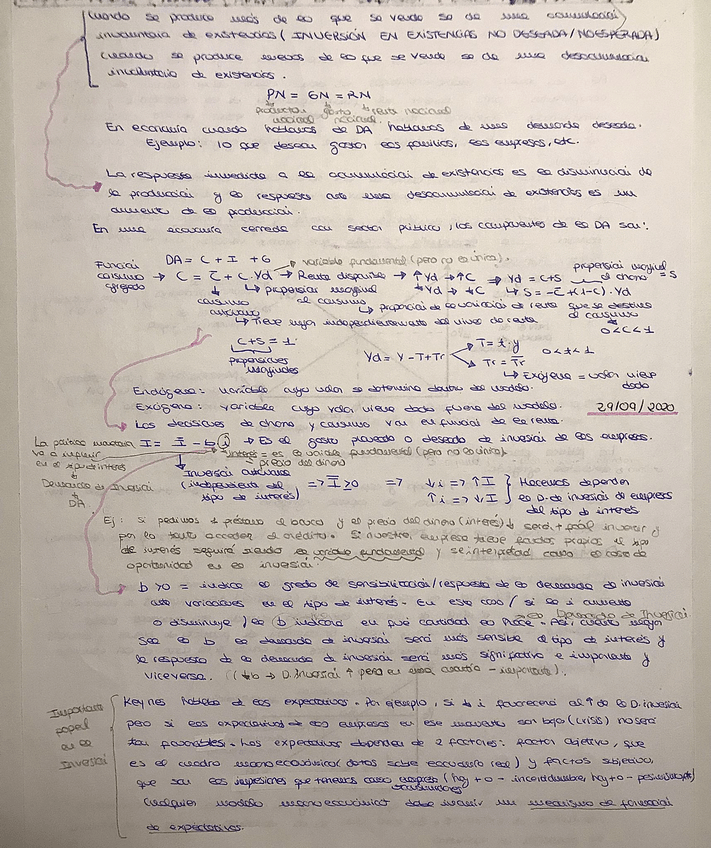 Cuando se produce más de lo que se vende se da una acumulación
involuntaria de existencias (INVERSIÓN EN EXISTENCIAS NO DESEADA/NO ESPERADA)
Cuando se produce menos de lo que se vende se da una desacumulación
involuntaria de existencias.
PN = GN = RN
producción nacional gasto nacional renta nacional
En economía cuando hablamos de DA hablamos de una demanda deseada.
Ejemplo: lo que desean gastar las familias, las empresas, etc.
La respuesta inmediata a la acumulación de existencias es la disminución de
la producción y la respuesta ante una desacumulación de existencias es un
aumento de la producción.
En una economía cerrada con sector público, los componentes de la DA son:
DA = C + I + G
variable fundamental (pero no única).
Función consumo agregado → C = C̅ + c. Yd → Renta disponible → ↑Yd → ↑C ⇒ Yd = C+S
propensión marginal al ahorro = s
↓Yd → ↓C ↳ S = -C̅ + (1-c). Yd
consumo autónomo
↳ propensión marginal al consumo
↳ proporción de la variación de renta que se destina al consumo
0<c<1
↳ Tiene lugar independientemente del nivel de renta
c+s = 1
propensiones marginales
Yd = Y - T + Tr
T = t. y 0 < t < 1
Tr = T̅r̅
↳ Exógena = valor viene dado
Endógena: variable cuyo valor se determina dentro del modelo.
Exógena: variable cuyo valor viene dado fuera del modelo.
29/09/2020
Las decisiones de ahorro y consumo van en función de la renta.
La política monetaria va a influir en el tipo de interés
Demanda de Inversión
DA
I = I̅ - b i → Es el gasto planeado o deseado de inversión de las empresas.
interés = es la variable fundamental (pero no la única).
precio del dinero
Inversión autónoma (independiente del tipo de interés)
=> I̅ ≥ 0 => ↓i => ↑I
↑i => ↓I
Hacemos depender la D. de inversión de empresas del tipo de interés
Ej: si pedimos 1 préstamo al banco y el precio del dinero (interés) ↓ será + fácil invertir y
por lo tanto acceder al crédito. Si nuestra empresa tiene fondos propios el tipo
de interés seguirá siendo la variable fundamental y se interpretará como el coste de
oportunidad en la inversión.
b > 0 = indica el grado de sensibilización/respuesta de la demanda de inversión
ante variaciones en el tipo de interés. En este caso, si la i aumenta
o disminuye, la b indicará en qué cantidad lo hace la Demanda de Inversión. Así cuanto mayor
sea la b la demanda de inversión será más sensible al tipo de interés y
la respuesta de la demanda de inversión será más significativa e importante y
viceversa. (↓b → D. Inversión ↑ pero en una cuantía - importante).
Importante papel en la Inversión
Keynes hablaba de las expectativas. Por ejemplo, si ↓ i favorecerá al ↑ de la D. inversión
pero si las expectativas de las empresas en ese momento son bajas (crisis) no será
tan favorables. Las expectativas dependen de 2 factores: factor objetivo, que
es el cuadro macroeconómico (datos sobre economía real) y factor subjetivo,
que son las impresiones que tenemos como consumidores (hay + o - incertidumbre, hay + o - pesimismo, etc)
Cualquier modelo macroeconómico debe incluir un mecanismo de formación
de expectativas.